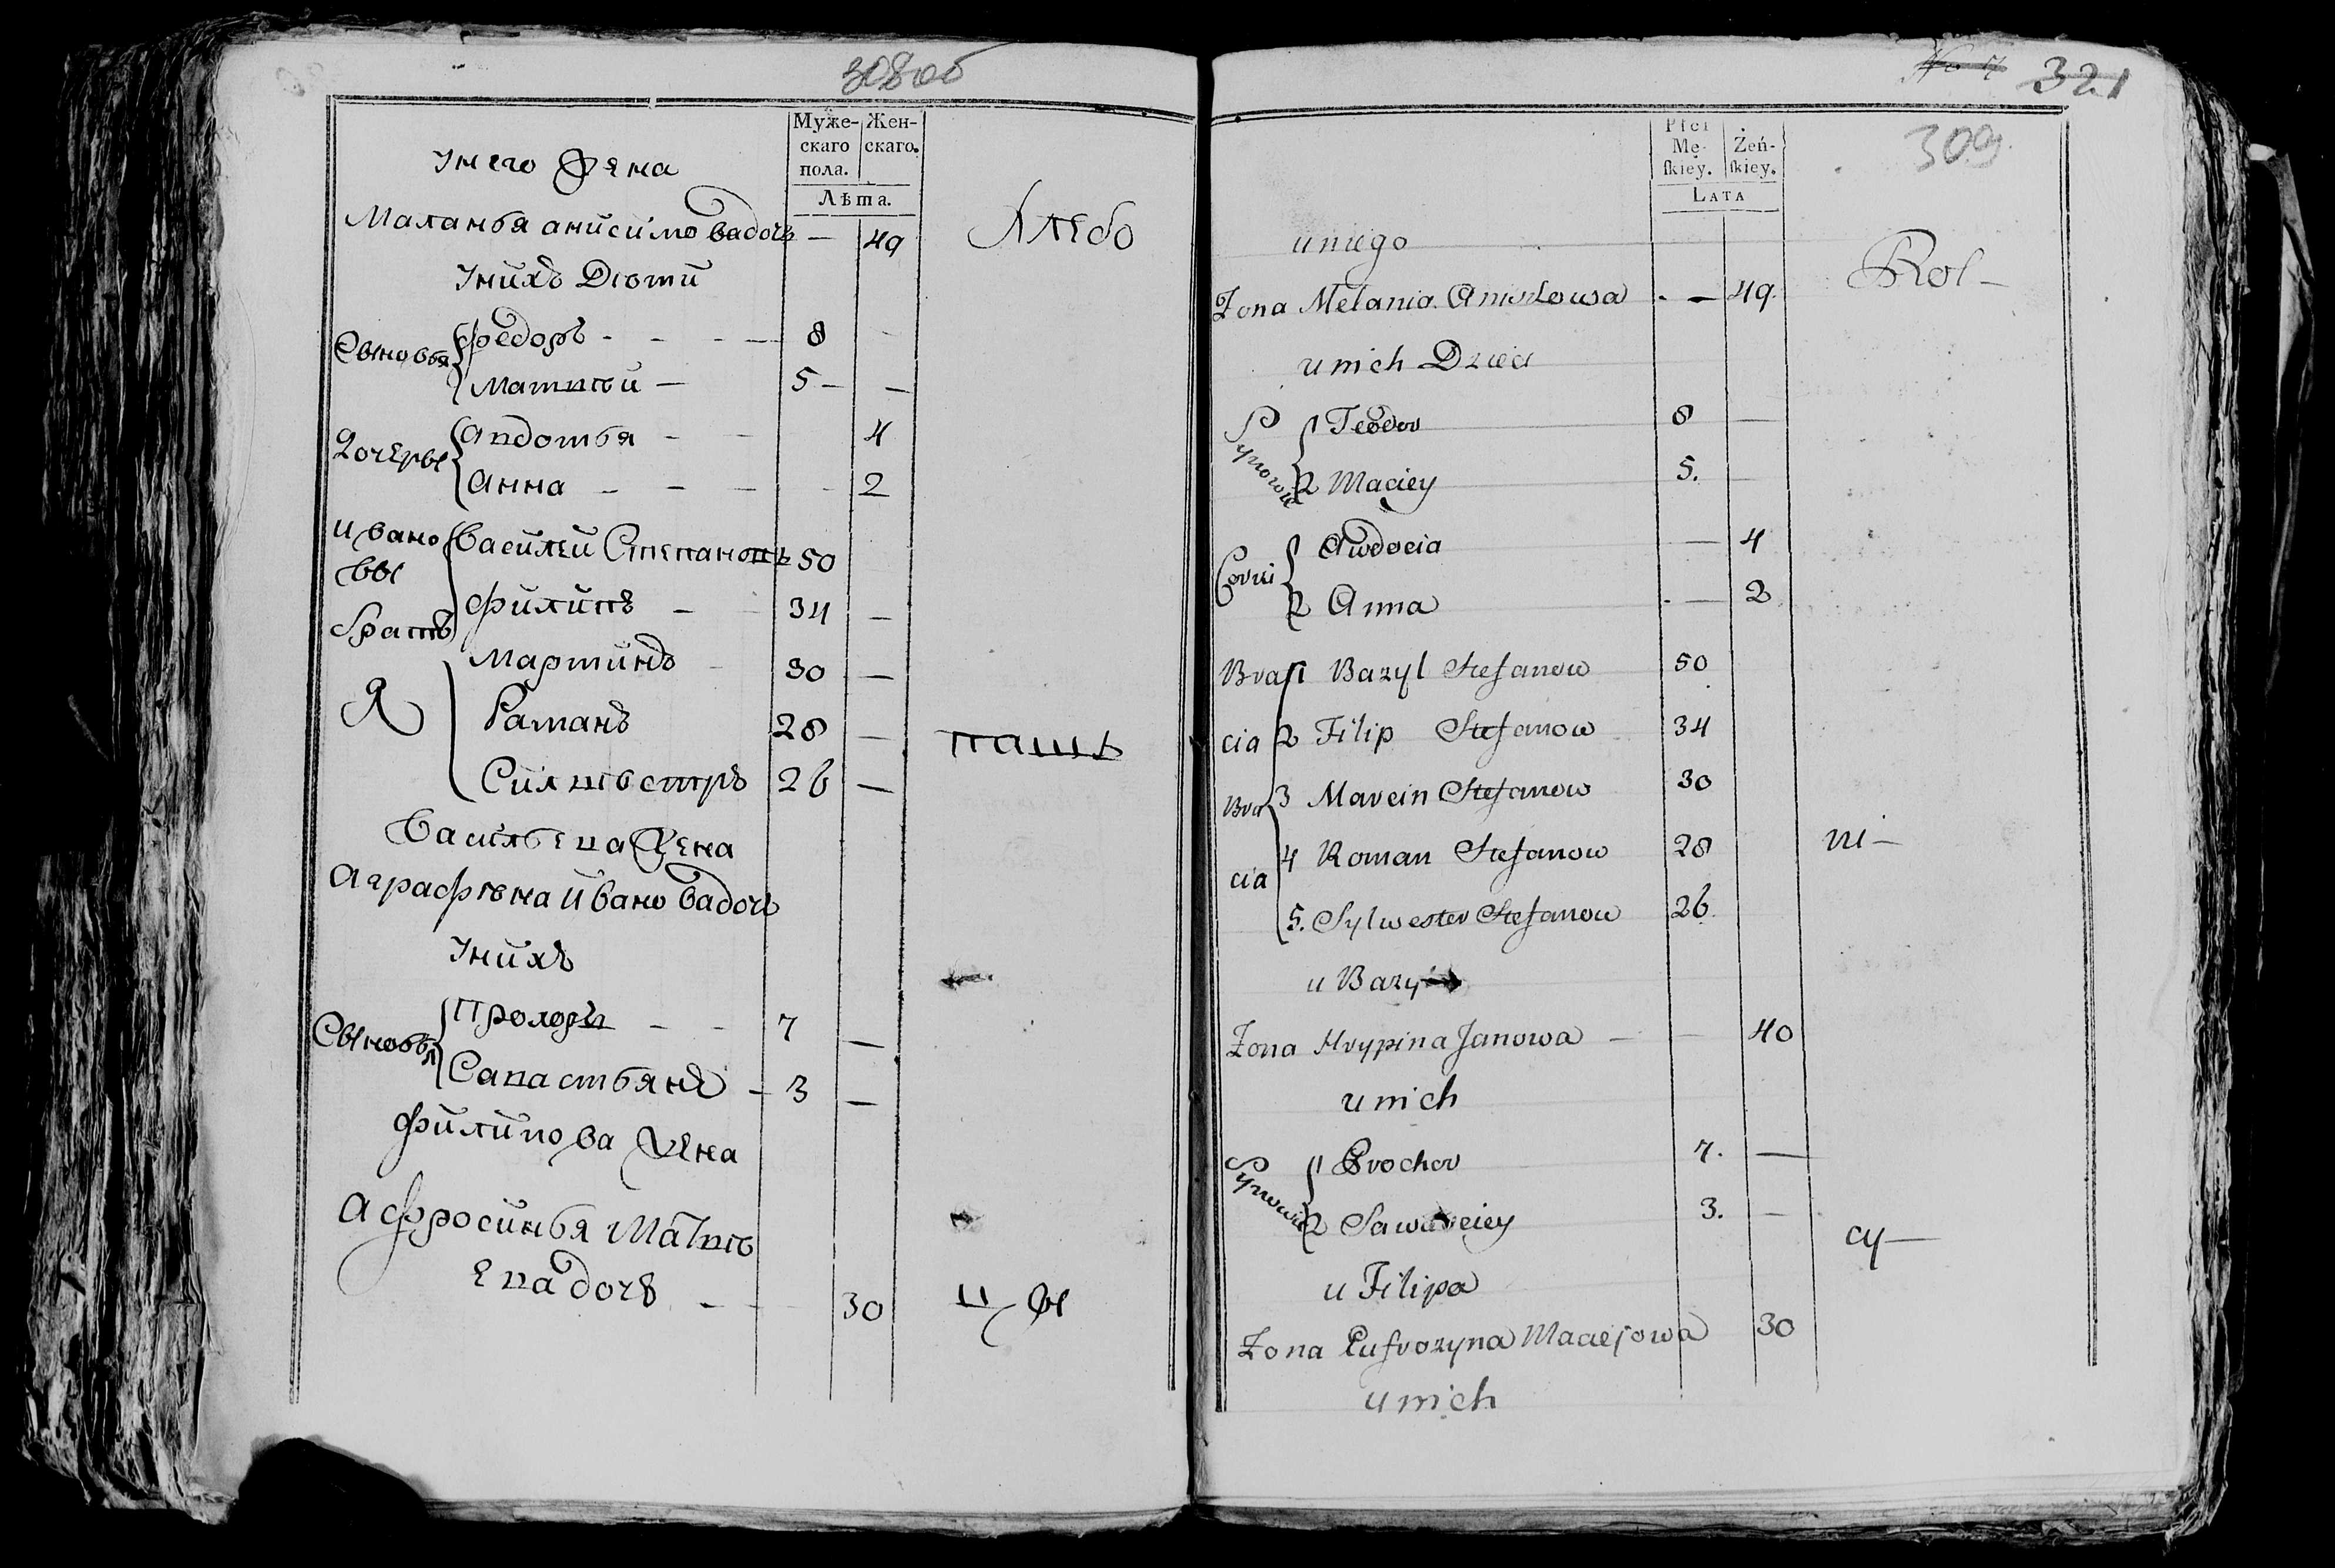 308об
Муже-
скаго
пола.
Жен-
скаго.
Лѣта.
Унего Жена
Маланья анисимова дочь — 49
Унихъ Дѣти
Сыновья
Федоръ 8 —
Матвѣй — 5 — —
Дочеры
Авдотья 4
Анна 2
Ивано
вы
Брать
я
Василей Степановъ 50
Филипъ — 34 —
Мартинъ 30 —
Раманъ 28 —
Силивестръ 26 —
Васильева Жена
Аграфѣна Ивановa дочь
Унихъ
Сыновья
Прохоръ — 7 —
Савастьянъ — 3 —
Филипова Жена
Афросинья Матвѣ
ева дочь — 30
Хлебо
паш
цы
№ 7 321
309
Płci
Mę-
ſkiey.
Żeń-
ſkiey.
Lata
u niego
Żona Melania Anisimowa — 49
u nich Dzieci
Synowie
1 Teodor 8 —
2 Maciey 5. —
Corki
1 Awdocia — 4
2 Anna — 2
Bra
cia
Bra
cia
1 Bazyl Stefanow 50
2 Filip Stefanow 34
3 Marcin Stefanow 30
4 Roman Stefanow 28
5. Sylwester Stefanow 26
u Bazyla
Żona Hrypina Janowa — — 40
u nich
Synowie
1 Prochor 7. —
2 3. —
u Filipa
Żona Eufrozyna Maciejowa 30
u nich
Rol—
ni—
cy—